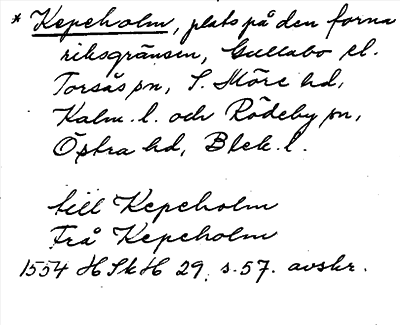 * Kepeholm, plats på den forna
riksgränsen, Gullabo el.
Torsås sn, S. Möre hd,
Kalm. l. och Rödeby sn,
Östra hd, Blek. l.
till Kepeholm
Frå Kepeholm
1554 HSkH 29, s. 57. avskr.